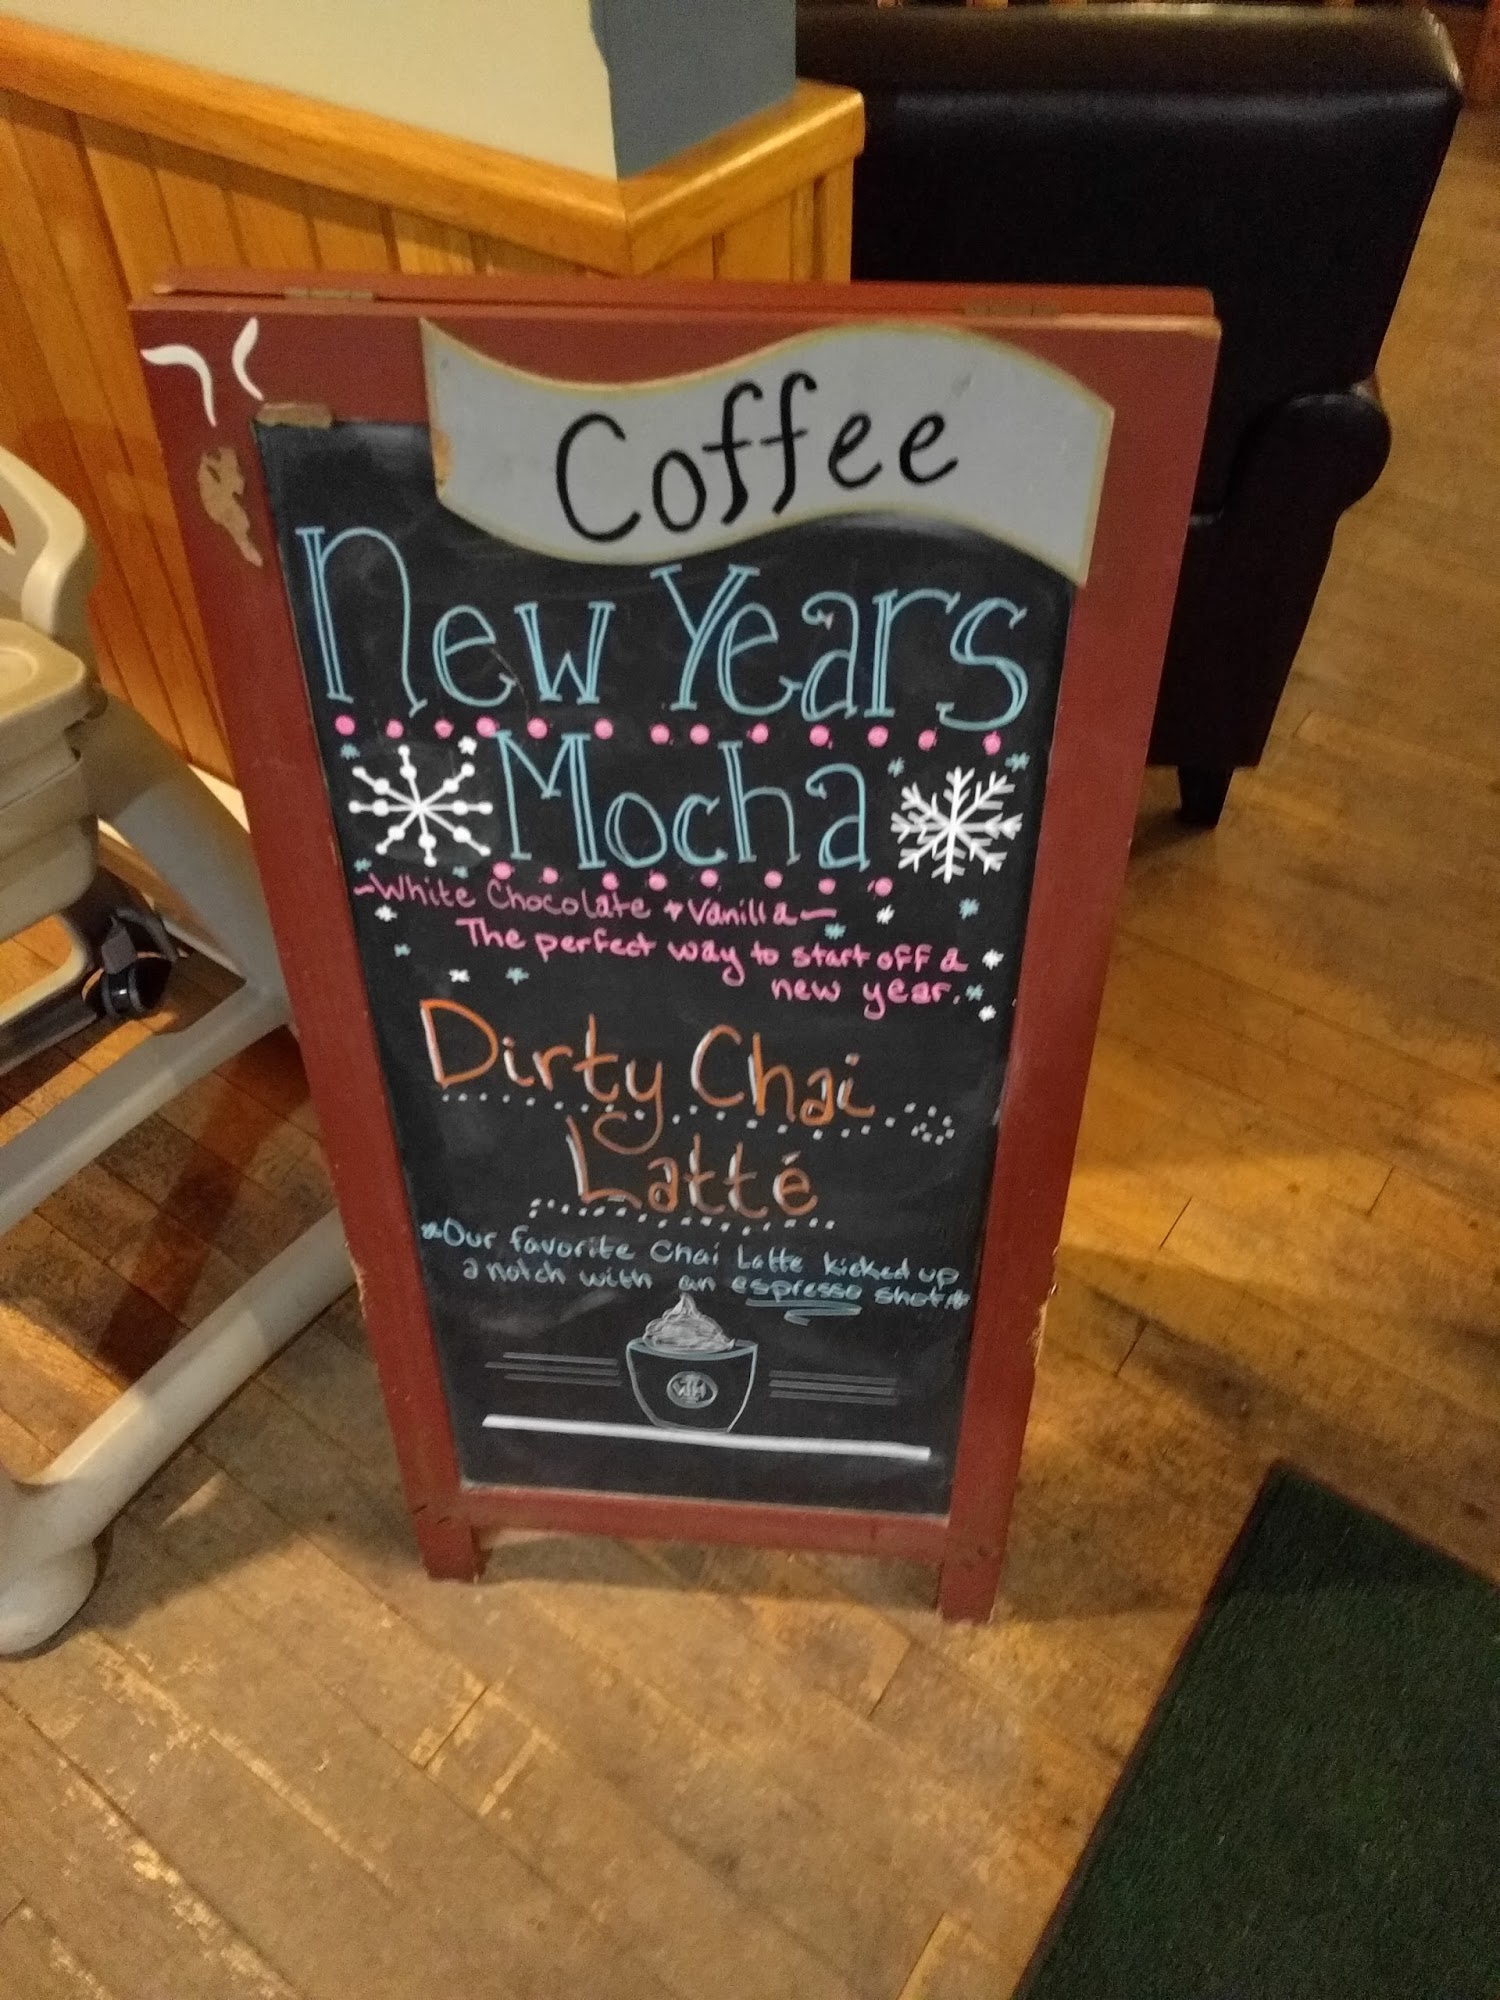 Coffee
New Years
Mocha
~White Chocolate + Vanilla~
The perfect way to start off a
new year.
Dirty Chai
Latté
*Our favorite Chai Latte kicked up
a notch with an espresso shot*